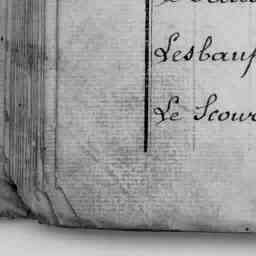 Lesbaup
Le Scour